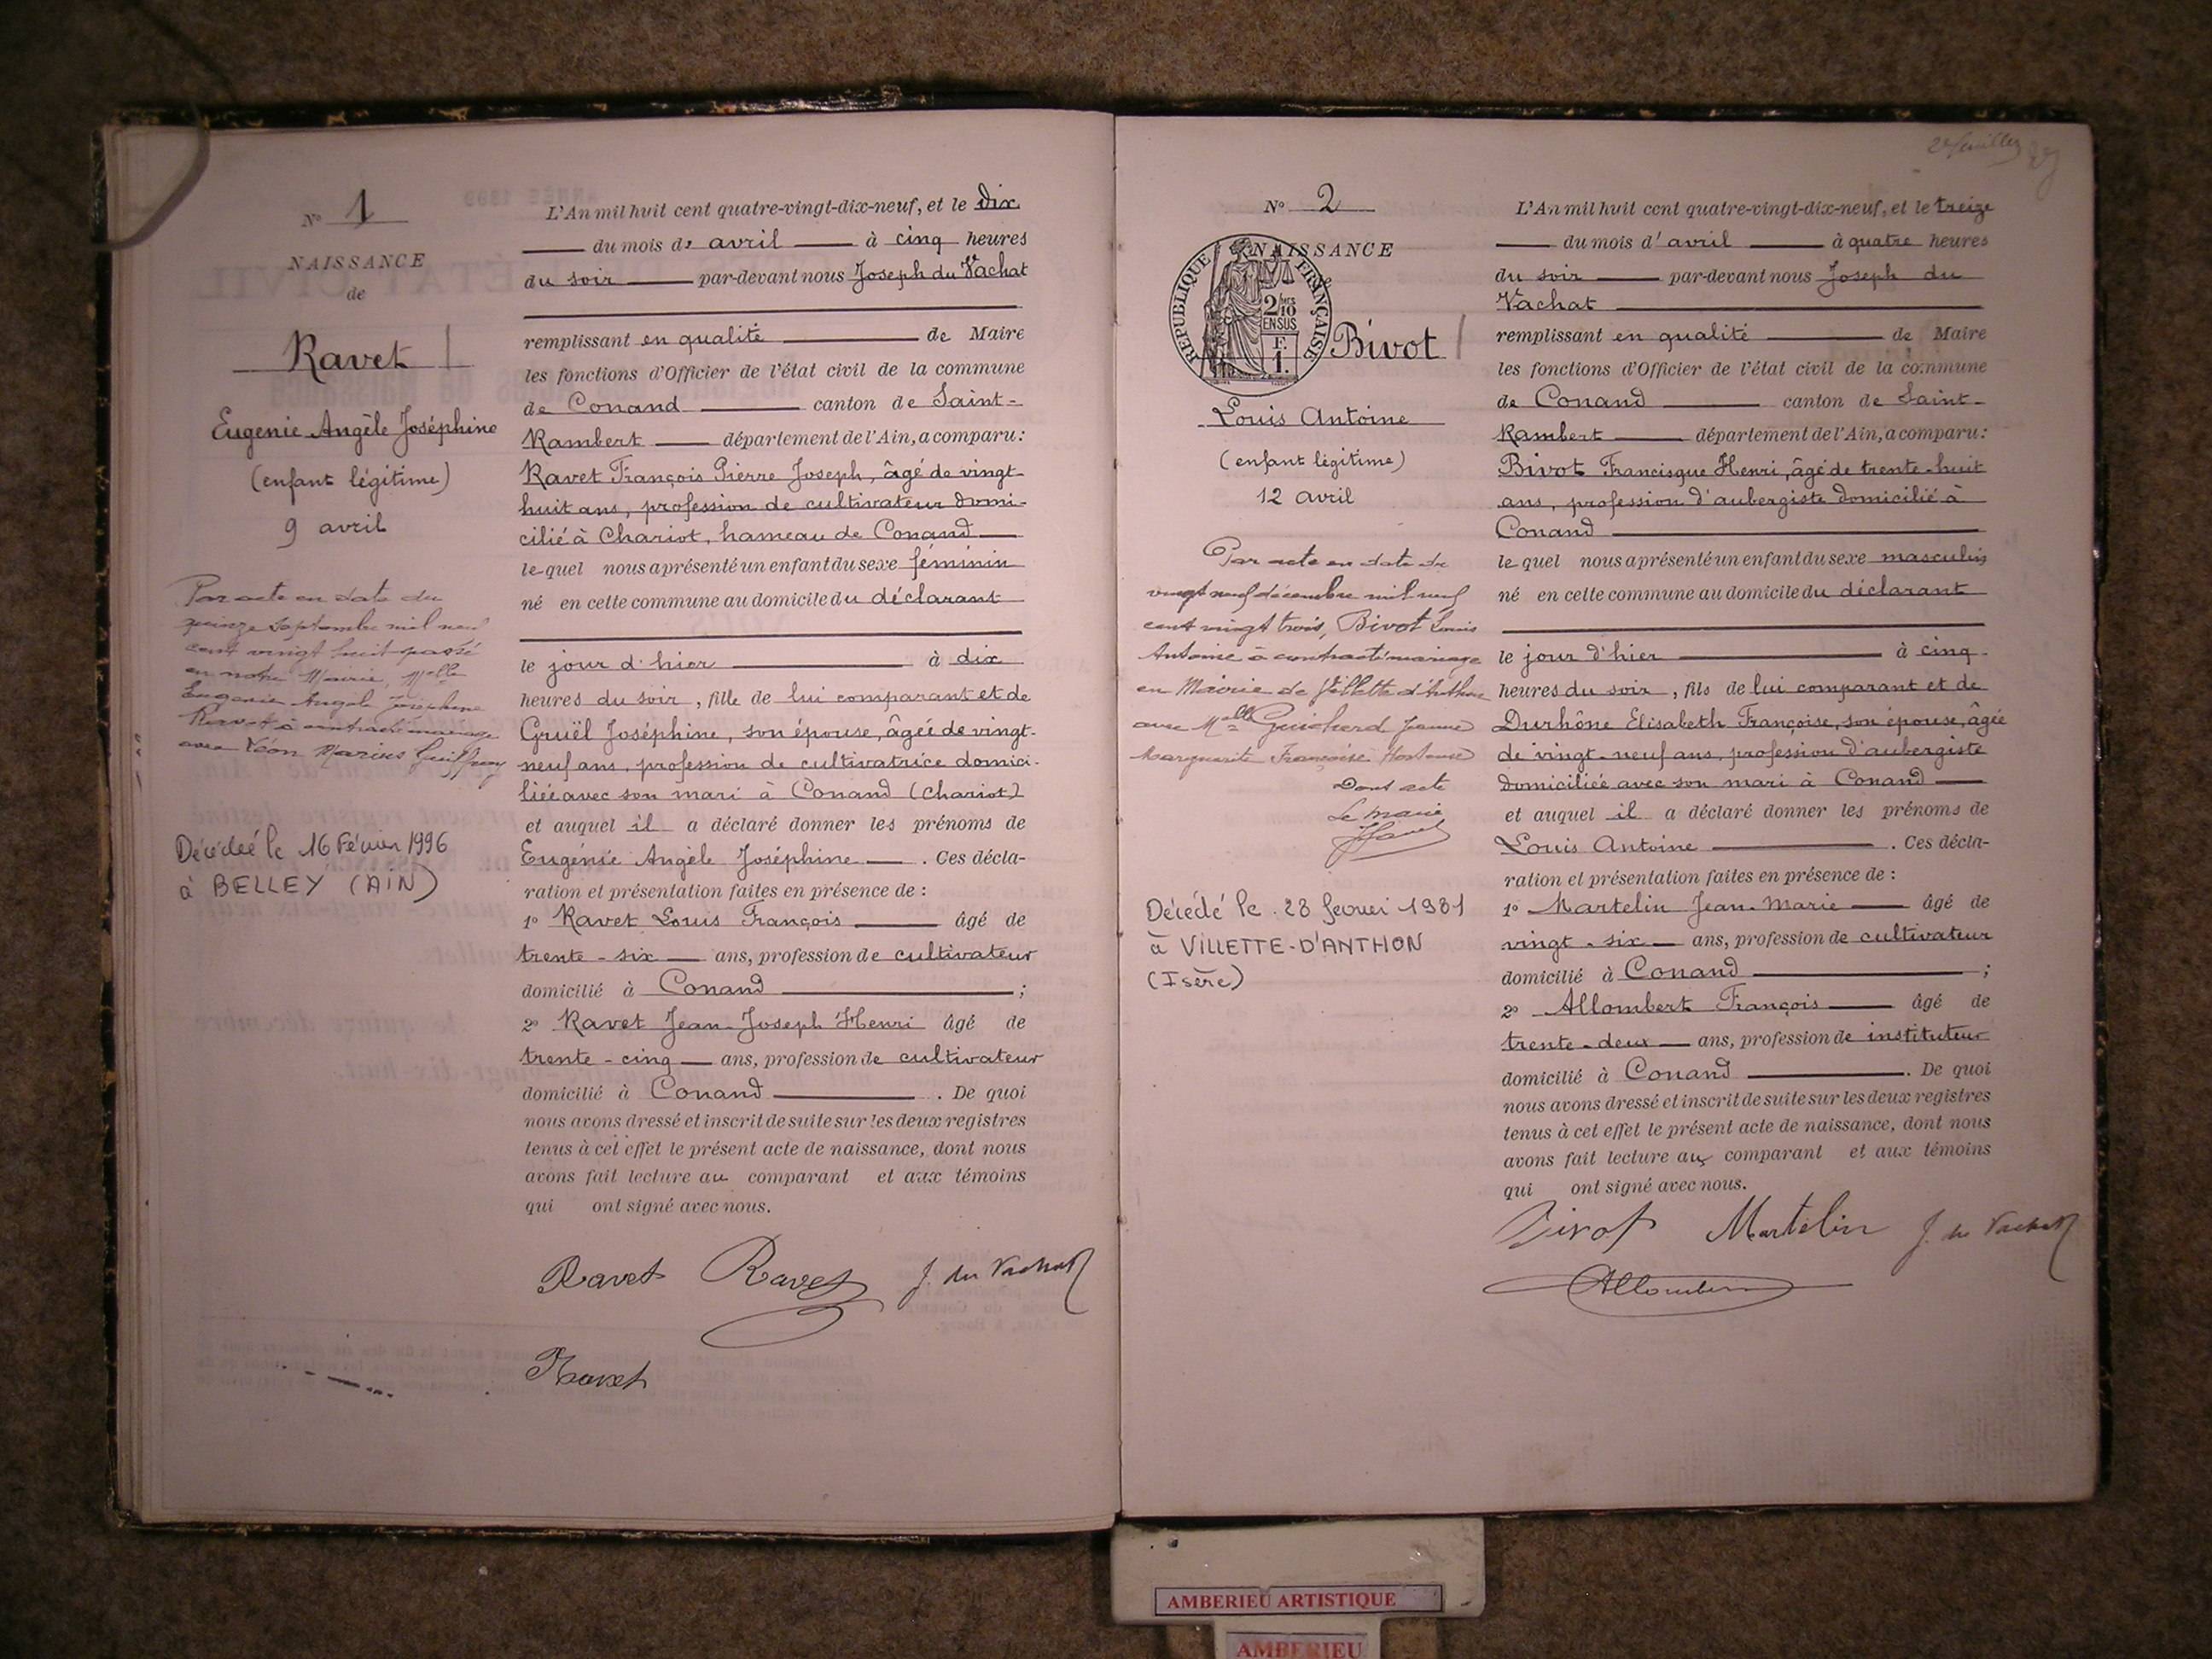 Nº 1
NAISSANCE
de
Ravet
Eugénie Angèle Joséphine
(enfant légitime)
9 avril
Par acte en date du
quinze septembre mil neuf
cent vingt huit passé
en notre Mairie, Melle
Eugénie Angèle Joséphine
Ravet à contracté mariage
avec Léon Marius
Décédée le 16 Février 1996
à BELLEY (AIN)
L'An mil huit cent quatre-vingt-dix-neuf, et le dix
du mois d' avril à cinq heures
du soir par-devant nous Joseph du Vachat
remplissant en qualité de Maire
les fonctions d'Officier de l'état civil de la commune
de Conand canton de Saint-
Rambert département de l'Ain, a comparu:
Ravet François Pierre Joseph, âgé de vingt-
huit ans, profession de cultivateur domi-
cilié à Chariot, hameau de Conand
le-quel nous a présenté un enfant du sexe féminin
né en cette commune au domicile du déclarant
le jour d'hier à dix
heures du soir, fille de lui comparant et de
Gruël Joséphine, son épouse, âgée de vingt-
neuf ans, profession de cultivatrice domici-
liée avec son mari à Conand (Chariot)
et auquel il a déclaré donner les prénoms de
Eugénie Angèle Joséphine . Ces décla-
ration et présentation faites en présence de :
1º Ravet Louis François âgé de
trente-six ans, profession de cultivateur
domicilié à Conand ;
2º Ravet Jean-Joseph Henri âgé de
trente-cinq ans, profession de cultivateur
domicilié à Conand . De quoi
nous avons dressé et inscrit de suite sur les deux registres
tenus à cet effet le présent acte de naissance, dont nous
avons fait lecture au comparant et aux témoins
qui ont signé avec nous.
Ravet Ravet J. du Vachat
Ravet
2e feuillet
Nº 2
NAISSANCE
RÉPUBLIQUE FRANÇAISE
2/10
EN SUS
F.
1.
Bivot
Louis Antoine
(enfant légitime)
12 avril
Par acte en date du
vingt neuf décembre mil neuf
cent vingt trois, Bivot Louis
Antoine à contracté mariage
en Mairie de Villette d'Anthon
avec Melle Guicherd Jeanne
Marguerite Françoise Hortense
Dont acte
Le maire
Décédé le 28 fevrier 1981
à VILLETTE-D'ANTHON
(Isère)
L'An mil huit cent quatre-vingt-dix-neuf, et le treize
du mois d'avril à quatre heures
du soir par-devant nous Joseph du
Vachat
remplissant en qualité de Maire
les fonctions d'Officier de l'état civil de la commune
de Conand canton de Saint-
Rambert département de l'Ain, a comparu:
Bivot Francisque Henri, âgé de trente-huit
ans, profession d'aubergiste domicilié à
Conand
le quel nous a présenté un enfant du sexe masculin
né en cette commune au domicile du déclarant
le jour d'hier à cinq
heures du soir, fils de lui comparant et de
Durhône Elisabeth Françoise, son épouse, âgée
de vingt-neuf ans, profession d'aubergiste
domiciliée avec son mari à Conand
et auquel il a déclaré donner les prénoms de
Louis Antoine . Ces décla-
ration et présentation faites en présence de :
1º Martelin Jean-Marie âgé de
vingt-six ans, profession de cultivateur
domicilié à Conand ;
2º Allombert François âgé de
trente-deux ans, profession de instituteur
domicilié à Conand . De quoi
nous avons dressé et inscrit de suite sur les deux registres
tenus à cet effet le présent acte de naissance, dont nous
avons fait lecture au comparant et aux témoins
qui ont signé avec nous.
Bivot Martelin J. du Vachat
Allombert
AMBERIEU ARTISTIQUE
AMBERIEU